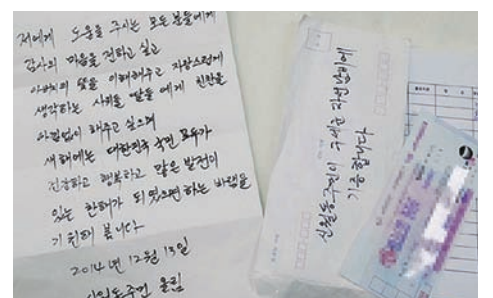 저에게 도움을 주시는 모든분들에게
감사의 마음을 전하고 싶고
아버지의 뜻을 이해해주고 자랑스럽게
생각하는 사위들 딸들 에게 칭찬을
아낌없이 해주고 싶으며
새해에는 대한민국 국민 모두가
건강하고 행복하고 많은 발전이
있는 한해가 되었으면 하는 바램을
기원해 봅니다
2014년 12월 13일
신월동주민 올림
신월동주민이 구세군 자선남비에
기증합니다